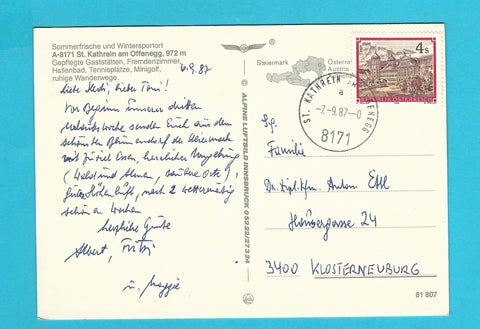 Sommerfrische und Wintersportort
A-8171 St. Kathrein am Offenegg, 972 m
Gepflegte Gaststätten, Fremdenzimmer,
Hallenbad, Tennisplätze, Minigolf,
ruhige Wanderwege.
6.9.87
Liebe Medi, lieber Toni!
Vor Beginn unserer dritten
Urlaubswoche senden Euch aus dem
schönsten Blumendorf der Steiermark
mit viel Essen, herrlicher Umgebung
(Wald und Almen, saubere Orte),
guter Höhenluft, nach 2 wettermäßig
schönen Wochen
herzliche Grüße
Albert, Fritzi
u. Maggie
© ALPINE LUFTBILD INNSBRUCK 05222/27324
Steiermark
Österrei
Austria
4 S
REPUBLIK ÖSTERREICH
ST. KATHREIN AM OFFENEGG
a
-7.-9.87-0
8171
Sg.
Familie
Dr. Dipl. Kfm. Anton
Hausergasse 24
3400 KLOSTERNEUBURG
81 807